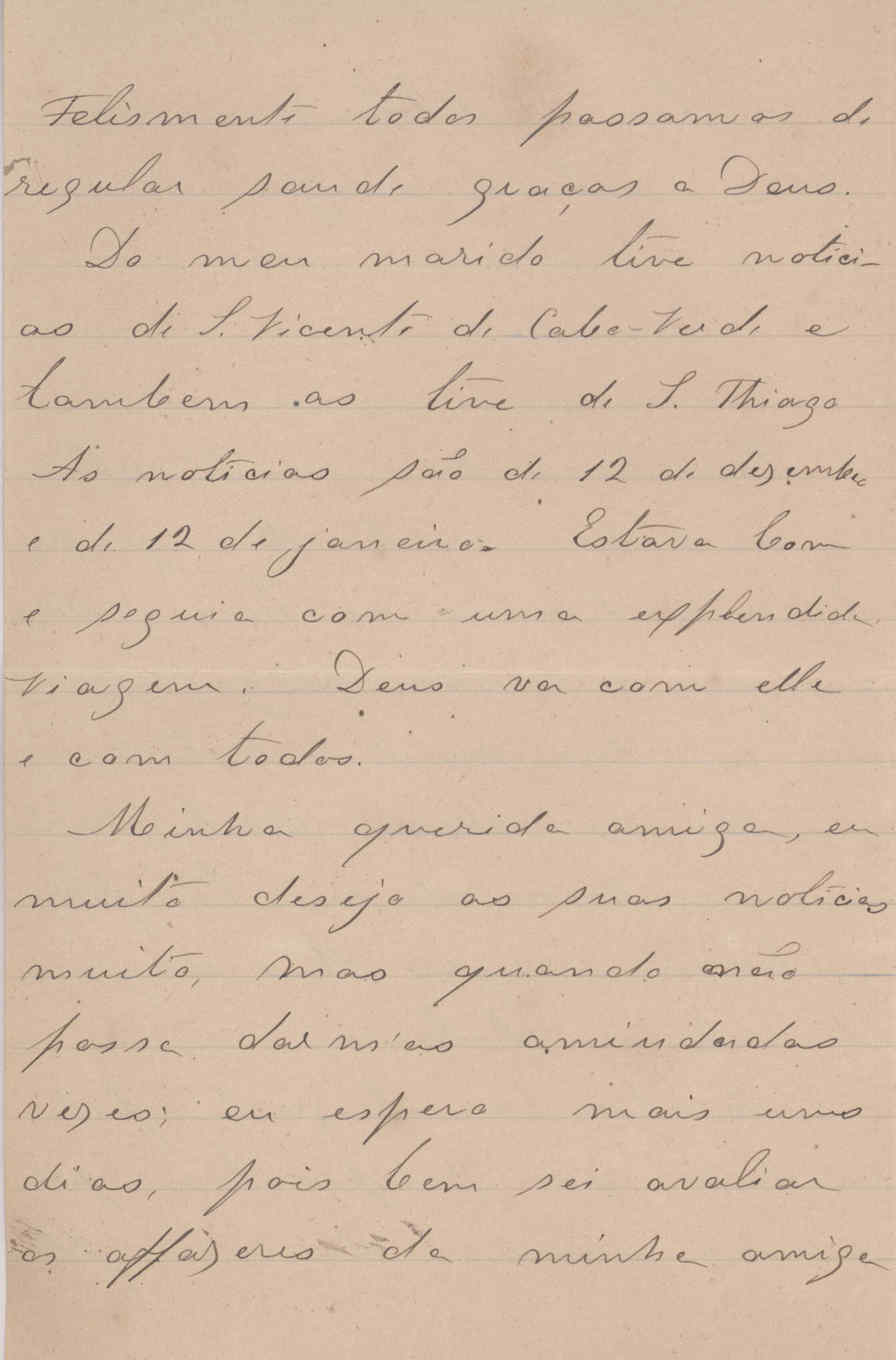 Felismente todos passamos de
regular saude graças a Deus.
Do meu marido tive notici-
as de S. Vicente de Cabo-Verde e
tambem as tive de S. Thiago
As noticias são de 12 de dezembro
e de 12 de janeiro. Estava bom
e seguia com uma explendida
viagem. Deus va com elle
e com todos.
Minha querida amiga, eu
muito desejo as suas noticias
muito, mas quando não
possa dar m'as amiudadas
vezes; eu espero mais uns
dias, pois bem sei avaliar
os affazeres da minha amiga